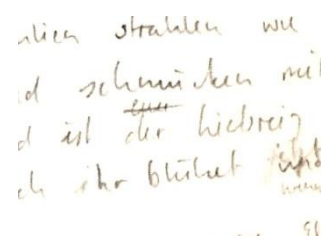 strahlen wie
d schmücken mit
euer
d ist der Liebreiz
ch ihr blühet und